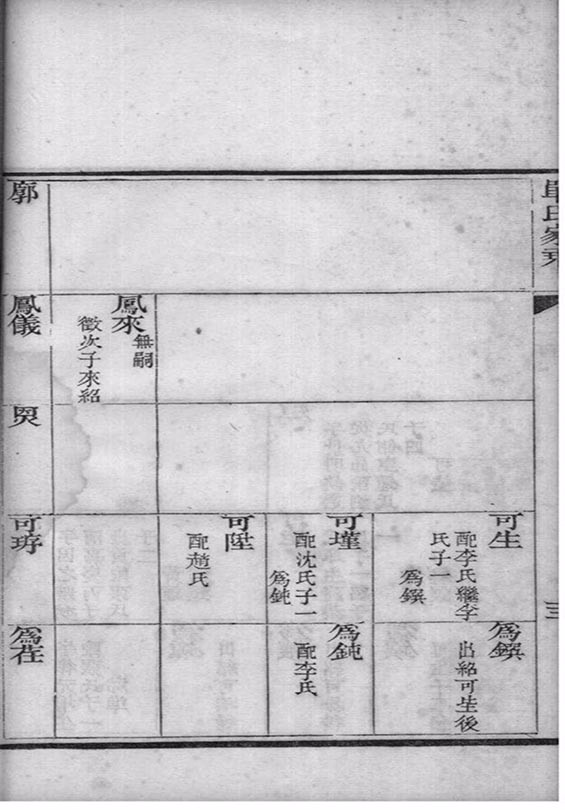 單氏家乘
三
鳳來
無嗣
徵次子來紹
可生
配李氏繼李
氏子一
為鏌
為鏌
出紹可生後
可墐
配沈氏子一
為鈍
為鈍
配李氏
可陞
配趙氏
廓
鳳儀
煚
可㺭
為荏